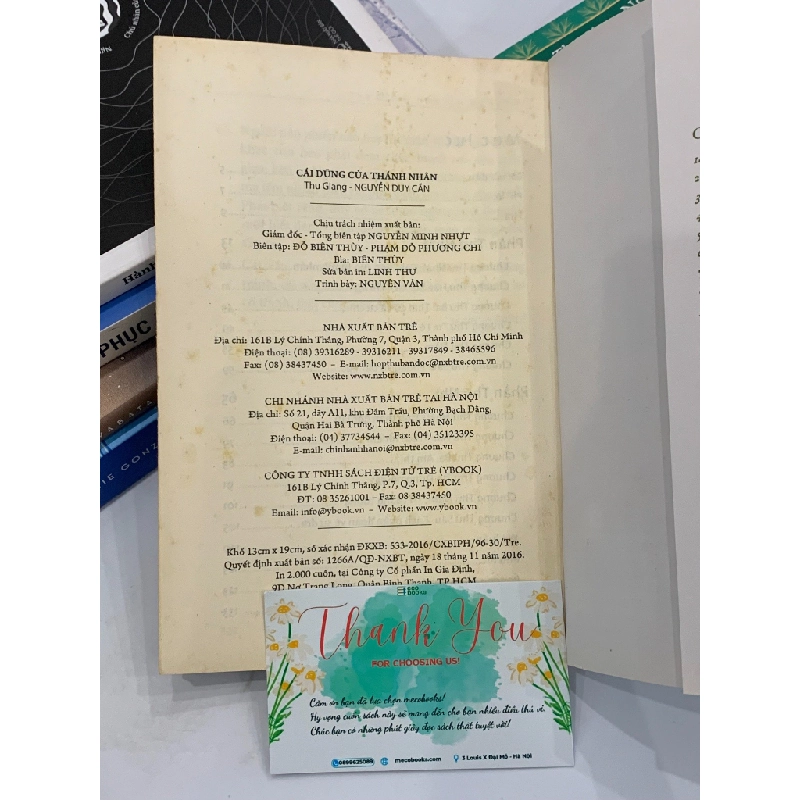 CÁI DŨNG CỦA THÁNH NHÂN
Thu Giang - NGUYỄN DUY CẦN
Chịu trách nhiệm xuất bản:
Giám đốc - Tổng biên tập NGUYỄN MINH NHỰT
Biên tập: ĐỖ BIÊN THÙY - PHẠM ĐỖ PHƯƠNG CHI
Bìa: BIÊN THÙY
Sửa bản in: LINH THƯ
Trình bày: NGUYÊN VÂN
NHÀ XUẤT BẢN TRẺ
Địa chỉ: 161B Lý Chính Thắng, Phường 7, Quận 3, Thành phố Hồ Chí Minh
Điện thoại: (08) 39316289 - 39316211 - 39317849 - 38465596
Fax: (08) 38437450 - E-mail: hopthubandoc@nxbtre.com.vn
Website: www.nxbtre.com.vn
CHI NHÁNH NHÀ XUẤT BẢN TRẺ TẠI HÀ NỘI
Địa chỉ: Số 21, dãy A11, khu Đầm Trấu, Phường Bạch Đằng,
Quận Hai Bà Trưng, Thành phố Hà Nội
Điện thoại: (04) 37734544 - Fax: (04) 35123395
E-mail: chinhanhhanoi@nxbtre.com.vn
CÔNG TY TNHH SÁCH ĐIỆN TỬ TRẺ (YBOOK)
161B Lý Chính Thắng, P.7, Q.3, Tp. HCM
ĐT: 08 35261001 - Fax: 08 38437450
Email: info@ybook.vn - Website: www.ybook.vn
Khổ 13cm x 19cm, số xác nhận ĐKXB: 533-2016/CXBIPH/96-30/Tre.
Quyết định xuất bản số: 1266A/QĐ-NXBT, ngày 18 tháng 11 năm 2016.
In 2.000 cuốn, tại Công ty Cổ phần In Gia Định,
9D Nơ Trang Long, Quận Bình Thạnh, TP.HCM
Thank You
FOR CHOOSING US!
Cảm ơn bạn đã lựa chọn mecobooks!
Hy vọng cuốn sách này sẽ mang đến cho bạn nhiều điều thú vị
Chúc bạn có những phút giây đọc sách thật tuyệt vời!
mecobooks.com
3 Louis X Đại Mỗ - Hà Nội
PHỤC